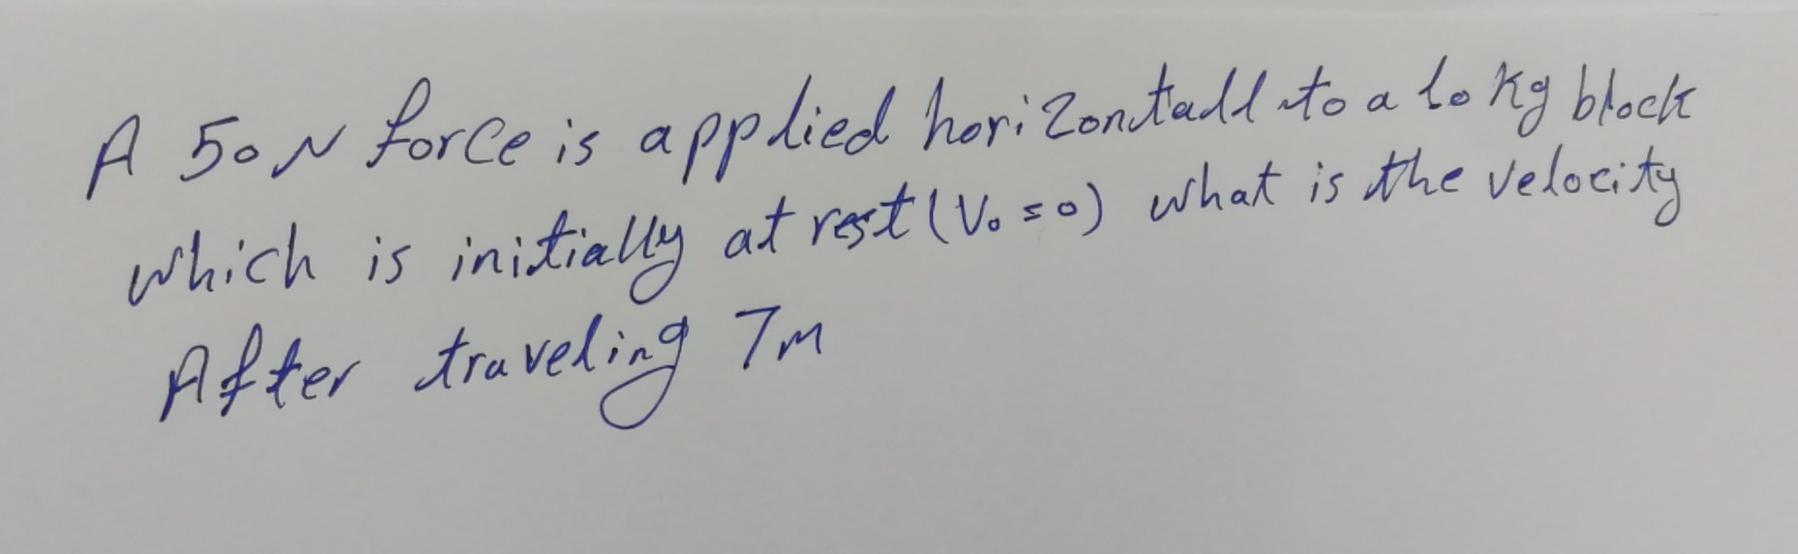 A 50 N force is applied horizontall to a 10 kg block
which is initially at rest (V₀ = 0) what is the velocity
After traveling 7m